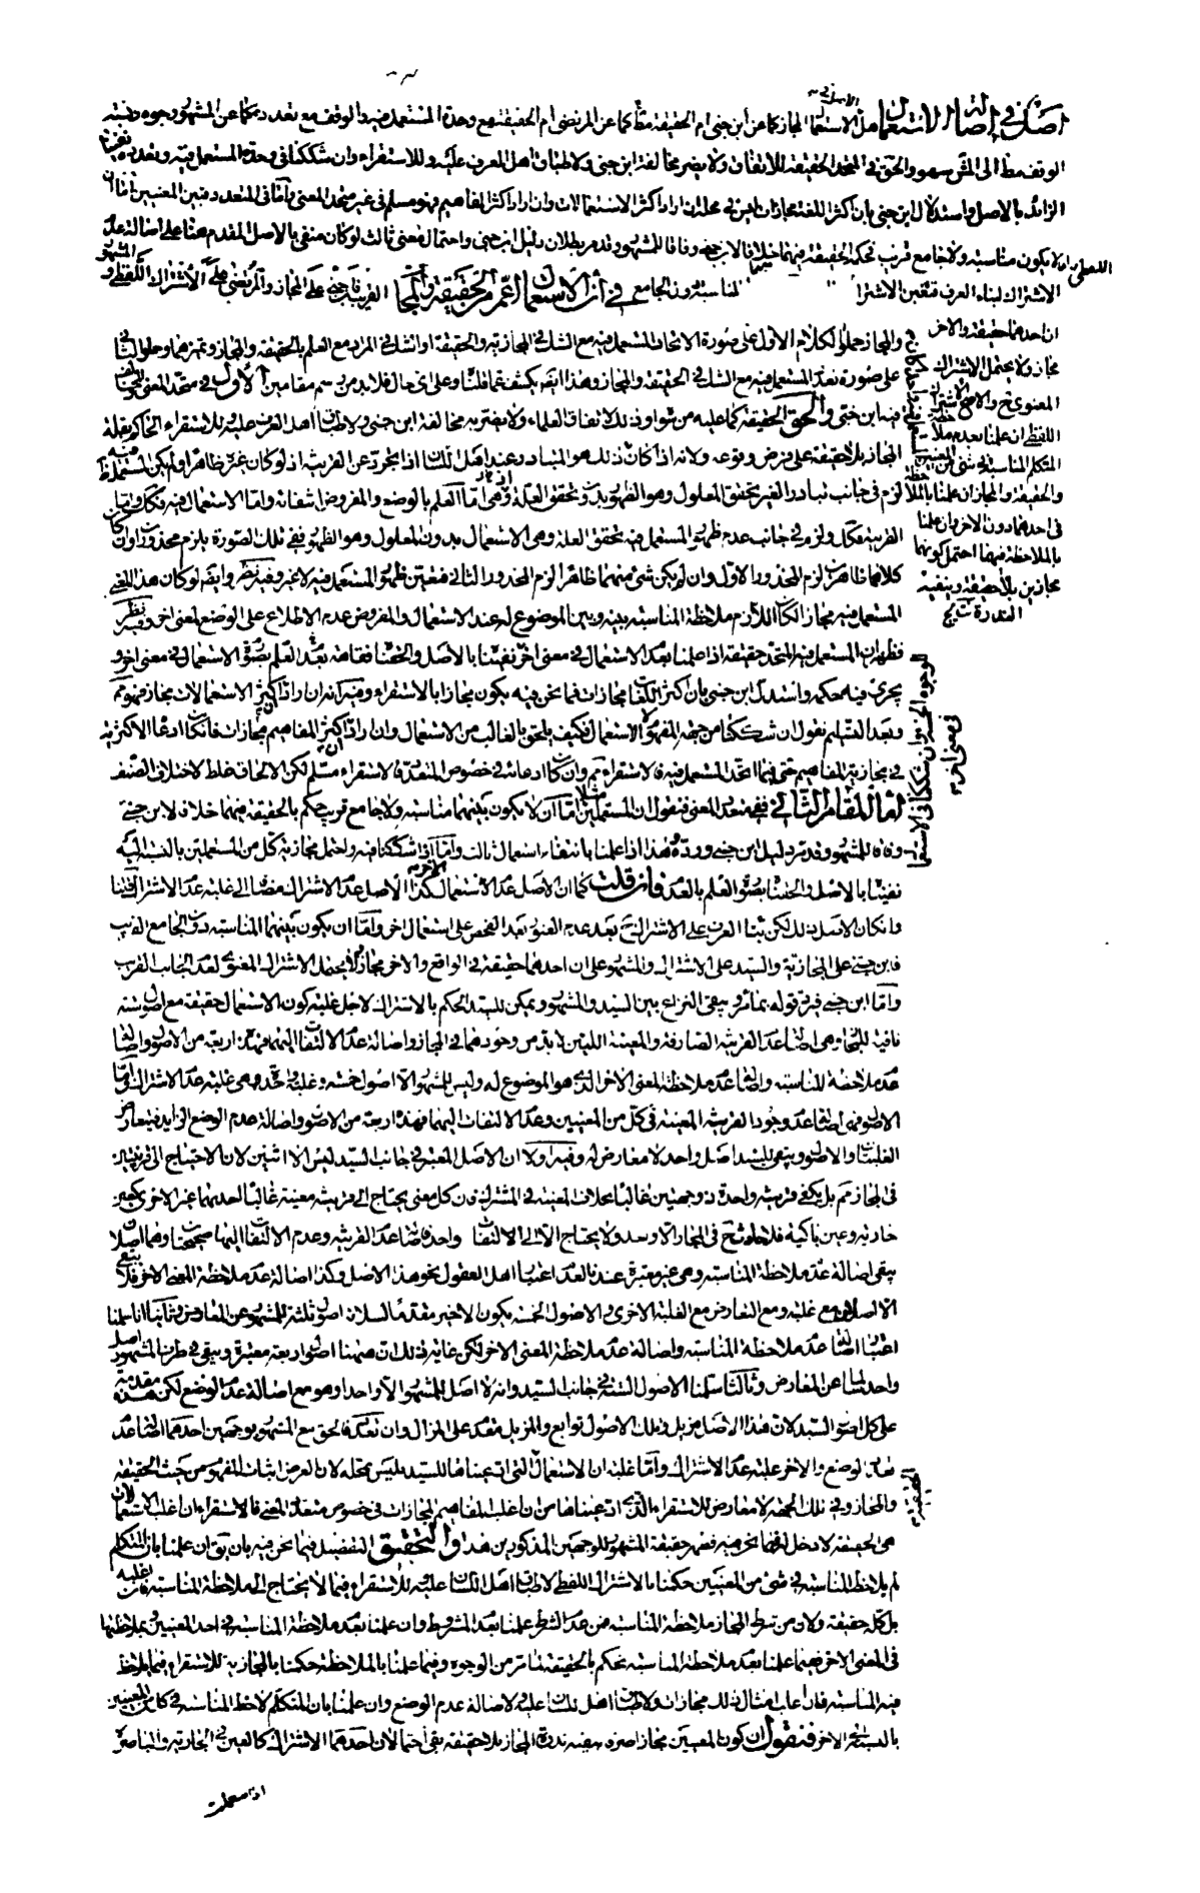 أصل في أصالة الاستعمال هل الاستعمال المجاز كما عن ابن جني ام الحقيقة مطلقا كما عن المرتضى ام الحقيقة مع وحدة المستعمل فيه والوقف مع تعدده كما عن المشهور وجوه ونسبة
الوقف مط الى المشهور سهو والحق في المتحد الحقيقة للاتفاق ولا يضر مخالفة ابن جني ولاطباق اهل العرف عليه وللاستقراء وان شككنا في وحدة المستعمل فيه وتعدده
الزائد بالاصل واستدلال ابن جني بان اكثر اللغة مجازات ليس في محله ان اراد اكثر الاستعمالات وان اراد اكثر المفاهيم فهو مسلم في غير متحد المعنى واما في المتعدد فبين المعنيين اما ان
لا يكون مناسبة ولا جامع قريب فحكمه الحقيقة فيهما خلافا لابن جني وفاقا للمشهور وقد مر بطلان دليل ابن جني واحتمال معنى ثالث لو كان منفي بالاصل المقدم هنا على اصالة عدم
الاشتراك لبناء العرف فتعين الاشتراك
المناسبة دون الجامع القريب فابن جني على المجاز والمرتضى على الاشتراك اللفظي والمشهور
في أن الاستعمال اعم من الحقيقة والمجاز
ان احدهما حقيقة والاخر
مجاز ولا يحتمل الاشتراك
المعنوي ح والاصح الاشتراك
اللفظي ان علمنا بعدم ملاحظة
المتكلم المناسبة في شئ من المعنيين
والحقيقة والمجاز ان علمنا بالملاحظة
في احدهما دون الاخر وان علمنا
بالملاحظة فيهما احتمل كونهما
مجازين بلا حقيقة وينفيه
الندرة
والمجاز حملوا الكلام الاول على صورة الاتحاد المستعمل فيه مع الشك في المجازية والحقيقة او الشك في المراد مع العلم بالحقيقة والمجاز وتميزهما وحملوا الثاني
على صورة تعدد المستعمل فيه مع الشك في الحقيقة والمجاز وهذا ايضا يكشف عما قلنا وعلى اي حال فلابد من رسم مقامين الاول في متحد المعنى والمخالف
فيه ابن جني والحق الحقيقة كما عليه من سواه وذلك لاتفاق العلماء ولا يضر به مخالفة ابن جني ولاطباق اهل العرف عليه وللاستقراء الحاكم بقلة
المجاز بلا حقيقة على فرض وقوعه ولانه اذا كان ذلك هو المتبادر عند اهل اللسان اذا تجرد عن القرينة اذ لو كان غيره ظاهرا ولم يكن المستعمل فيه ظاهرا
لزم في جانب تبادر الغير تحقق المعلول وهو الظهور بدون تحقق العلة وهي اما العلم بالوضع والمفروض انتفائه واما الاستعمال فيه فكك واما
القرينة فكك ولزم في جانب عدم ظهور المستعمل فيه تحقق العلة وهي الاستعمال بدون المعلول وهو الظهور ففي تلك الصورة يلزم محذوران وان كان
كلاهما ظاهرين لزم المحذور الاول وان لم يكن شئ منهما ظاهرا لزم المحذور الثاني فتعين ظهور المستعمل فيه لا غير وفيه نظر وايضا لو كان هذا المعنى
المستعمل فيه مجازا لكان اللازم ملاحظة المناسبة بينه وبين الموضوع له عند الاستعمال والمفروض عدم الاطلاع على الوضع لمعنى اخر وفيه نظر
فظهر ان المستعمل فيه المتحد حقيقة اذا علمنا بعدم الاستعمال في معنى اخر نفيناه بالاصل والحقناه بصورة العلم بعدم الاستعمال في معنى اخر و
يجري فيه حكمه واستدل ابن جني بان اكثر اللغة مجازات فما نحن فيه يكون مجازا بالاستقراء وفيه انه ان اراد ان اكثر الاستعمالات مجاز فهو مم
وبعد التسليم نقول ان شككنا من جهة المفهوم لا الاستعمال فكيف يلحق بالغالب من الاستعمال وان اراد ان اكثر المفاهيم مجازات فان كان ادعاء الاكثرية
في مجازية المفاهيم حتى فيما اتحد المستعمل فيه فالاستقراء مم وان كان ادعائه في خصوص المتعدد فالاستقراء مسلم لكن الالحاق غلط لاختلاف الصنف
اما المقام الثاني ففي متعدد المعنى فنقول ان المستعملين مثلا اما ان لا يكون بينهما مناسبة ولا جامع قريب حكم بالحقيقة فيهما خلافا لابن جني
وفاقا للمشهور وقد مر دليل ابن جني ورده هذا اذا علمنا بانتفاء استعمال ثالث واما اذا شككنا فيه واحتمل مجازية كل من المستعملين بالنسبة اليه
نفيناه بالاصل والحقناه بصورة العلم بالعدم فان قلت كما ان الاصل عدم الاستعمال كذا الاصل عدم الاشتراك مضافا الى غلبة عدم الاشتراك
وان كان الاصل ذلك لكن بناء العرف على الاشتراك ح بعد عدم العثور بعد الفحص على استعمال اخر واما ان يكون بينهما المناسبة دون الجامع القريب
فابن جني على المجازية والسيد على الاشتراك والمشهور على ان احدهما حقيقة في الواقع والاخر مجاز ولا يحتمل الاشتراك المعنوي لعدم الجامع القريب
واما ابن جني فيرد قوله بما مر ويبقى النزاع بين السيد والمشهور ويمكن للسيد الحكم بالاشتراك لاجل غلبة كون الاستعمال حقيقة مع اصول ستة
نافية للمجاز وهي اصالة عدم القرينة الصارفة والمعينة اللتين لابد من وجودهما في المجاز واصالة عدم الالتفات اليهما فهذه اربعة من الاصول واصالة
عدم ملاحظة المناسبة واصالة عدم ملاحظة المعنى الاخر الذي هو الموضوع له وليس للمشهور الا اصول خمسة وغلبة واحدة وهي غلبة عدم الاشتراك واما
الاصول فهي اصالة عدم وجود القرينة المعينة في كل من المعنيين وعدم الالتفات اليهما فهذه اربعة من الاصول واصالة عدم الوضع الزايد فيتعارض
الغلبتان والاصول ويبقى للسيد اصل واحد لا معارض له وفيه اولا ان الاصل المعتبر في جانب السيد ليس الا اثنين لان الاحتياج الى قرينتين
في المجاز مم بل يكفي قرينة واحدة ذو جهتين غالبا بخلاف المعينة في المشترك فان كل معنى يحتاج الى قرينة معينة غالبا احدهما غير الاخرى كعين
جارية وعين باكية فلا يلاحظ ح في المجاز الا واحد ولا يحتاج الا الى الالتفات واحد فاصالة عدم القرينة وعدم الالتفات اليها صحيحتان وهما اصلان
يبقى اصالة عدم ملاحظة المناسبة وهي غير معتبرة عندنا لعدم اعتبار اهل العقول بنحو هذا الاصل وكذا اصالة عدم ملاحظة المعنى الاخر فلا يبقى
الا اصلان مع غلبة ومع التعارض مع الغلبة الاخرى والاصول الخمسة يكون الاخير مقدما لسلامة اصول ثلثة للمشهور عن المعارض وثانيا انا سلمنا
اعتبار اصالة عدم ملاحظة المناسبة واصالة عدم ملاحظة المعنى الاخر لكن غاية ذلك ان هيهنا اصول اربعة معتبرة ويبقى في طرف المشهور اصل
واحد سالما عن المعارض وثالثا سلمنا الاصول الستة في جانب السيد وانه لا اصل للمشهور الا واحدا وهو مع اصالة عدم الوضع لكن هذه مقدمة
على كل اصول السيد لان هذا الاصل مزيل وتلك الاصول توابع والمزيل مقدم على المزال وان تعدد فالحق مع المشهور بوجهين احدهما اصالة عدم
تعدد الوضع والاخر غلبة عدم الاشتراك واما غلبة ان الاستعمال التي ادعيناها للسيد فليس بمحله لان الغرض اثبات المفهوم من حيث الحقيقة
والمجاز وفي تلك الجهة لا معارض للاستقراء الذي ادعيناها من ان اغلب المفاهيم المجازات في خصوص متعدد المعنى فالاستقراء ان اغلب الاستعمالات
هي الحقيقة لا دخل لها فيما نحن فيه فهم حقيقة المشهور للوجهين المذكورين هذا والتحقيق التفصيل فيما نحن فيه بان يق ان علمنا بان المتكلم
لم يلاحظ المناسبة في شئ من المعنيين حكمنا بالاشتراك اللفظي لاطباق اهل اللسان عليه وللاستقراء فيما لا يحتاج الى ملاحظة المناسبة فان اغلبه
بل كله حقيقة ولان من شرط المجاز ملاحظة المناسبة فمن عدم الشرط علمنا بعدم المشروط وان علمنا بعدم ملاحظة المناسبة في احد المعنيين وبملاحظتها
في المعنى الاخر فيما علمنا بعدم ملاحظة المناسبة يحكم بالحقيقة لما مر من الوجوه وفيما علمنا بالملاحظة حكمنا بالمجازية للاستقراء فيما يلاحظ
فيه المناسبة فان اغلب امثال ذلك مجازات ولاطباق اهل اللسان عليه ولاصالة عدم الوضع وان علمنا بان المتكلم لاحظ المناسبة في كل من المعنيين
بالنسبة الى الاخر فنقول ان كون المعنيين مجازا صرفا ينفيه ندرة المجاز بلا حقيقة بقي احتمالان احدهما الاشتراك كالعين في الجارية والباصرة
الوجوه المزبورة وان شككنا في الاستعمال
في معنى اخر
الحقيقة
اذا استعملت